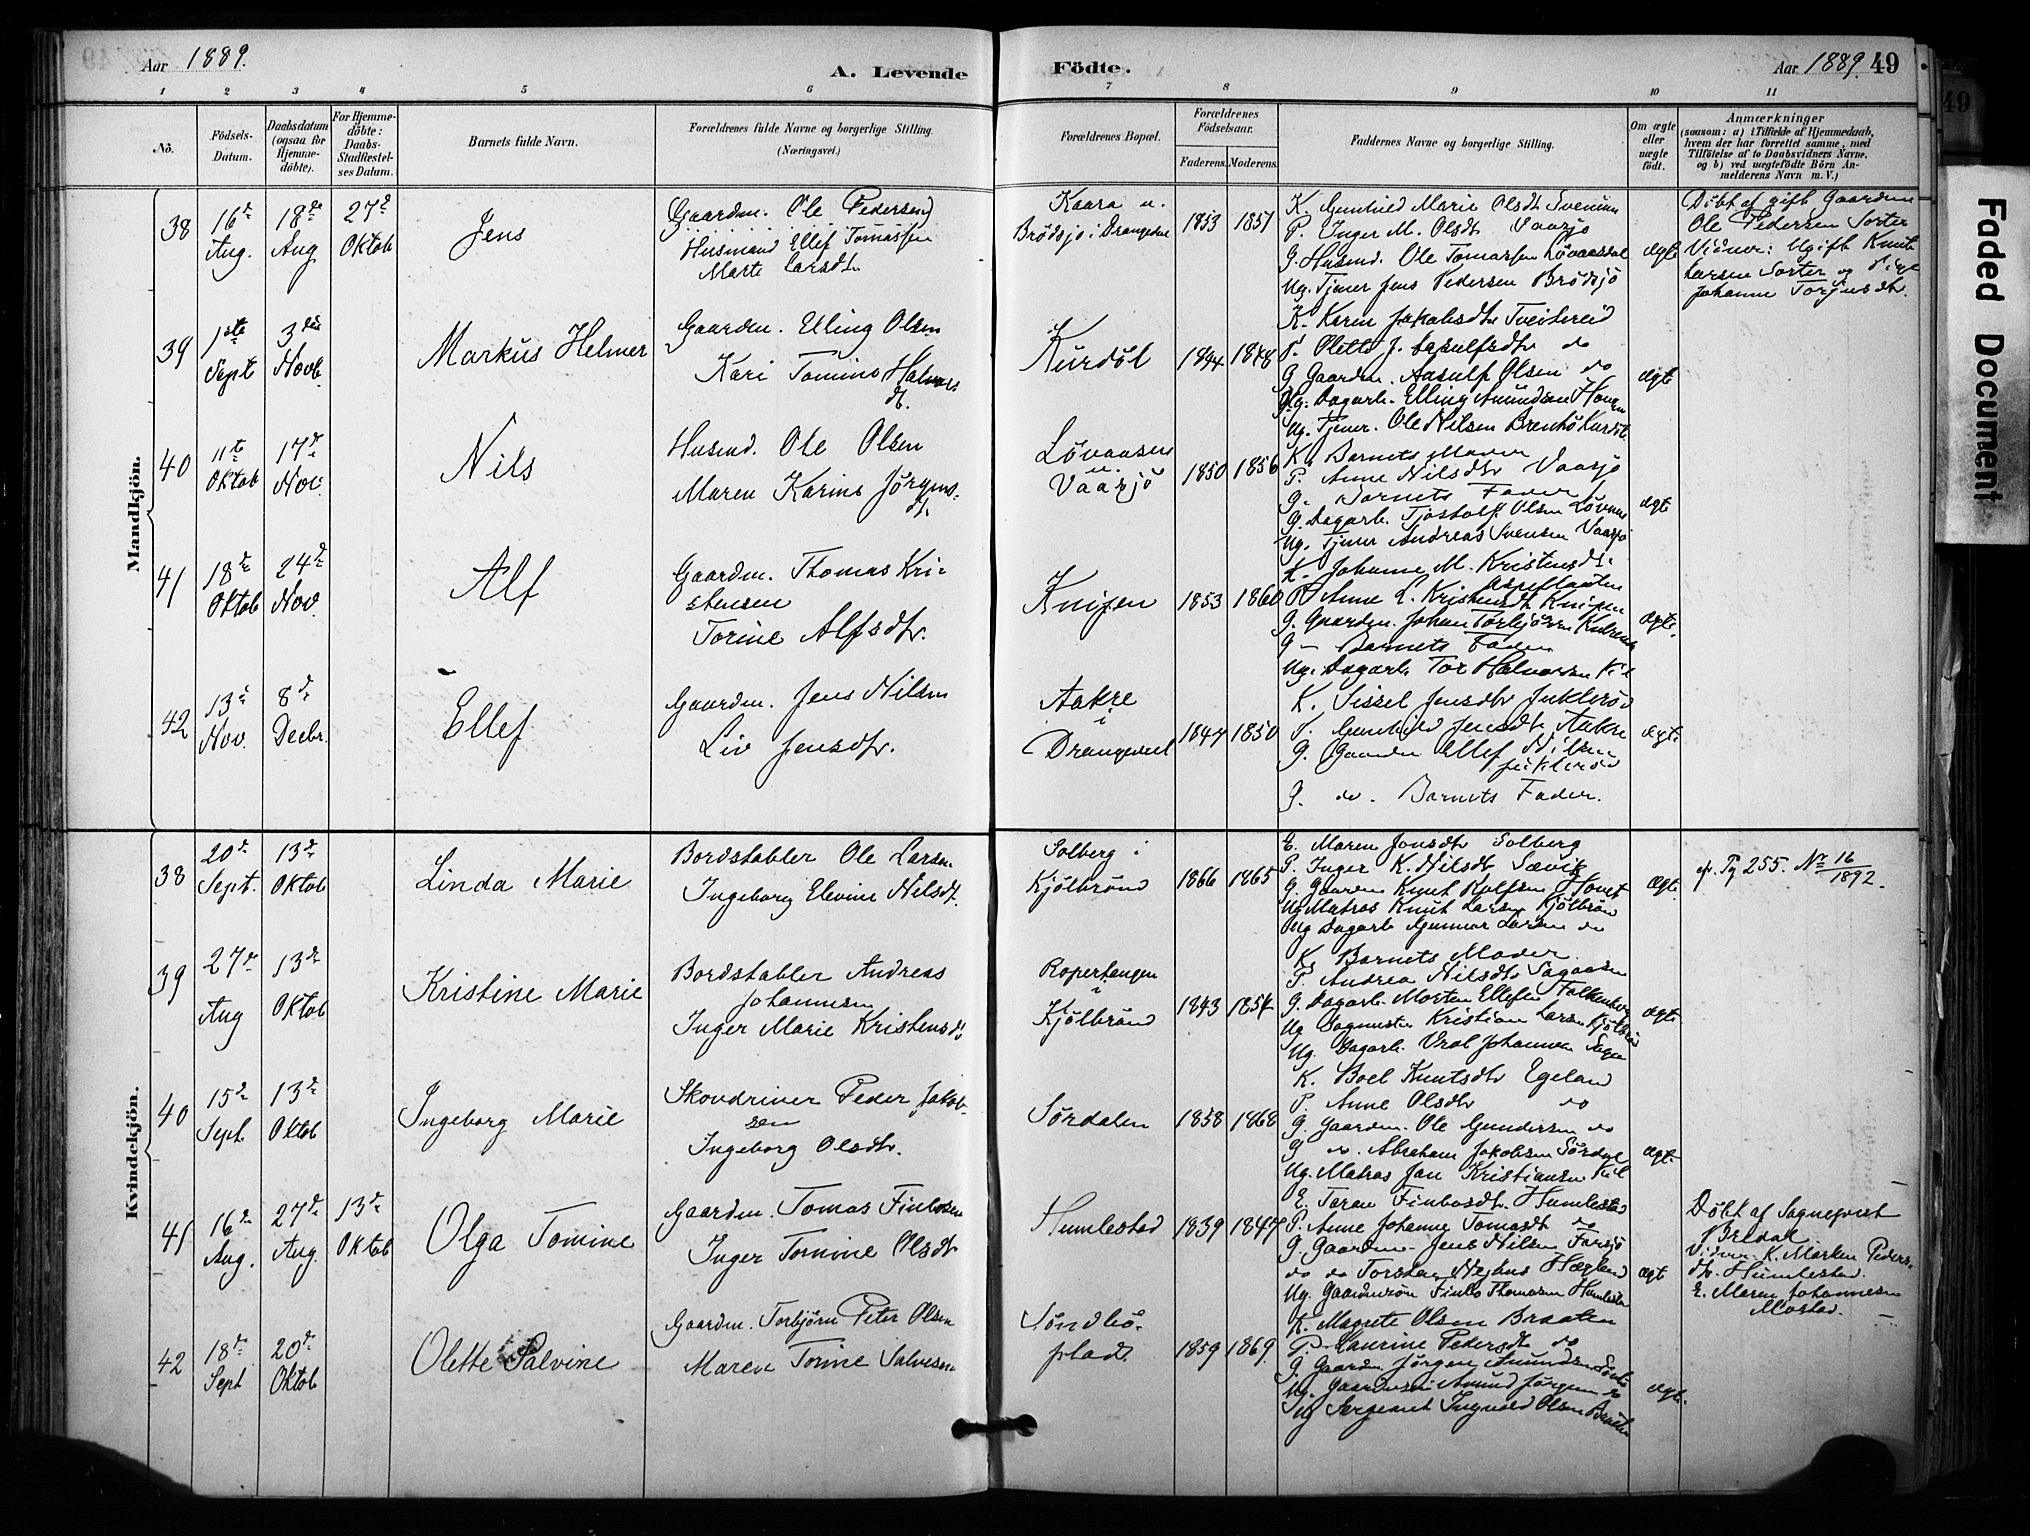 Aar 1889.
A. Levende Födte.
Aar 1889. 49
1 2 3 4 5 6 7 8 9 10 11
No.
Födsels-Datum.
Daabsdatum (ogsaa for Hjemmedöbte).
For Hjemmedöbte: Daabs-Stadfæstelses Datum.
Barnets fulde Navn.
Forældrenes fulde Navne og borgerlige Stilling. (Næringsvei.)
Forældrenes Bopæl.
Forældrenes Födselsaar.
Faderens. Moderens.
Faddernes Navne og borgerlige Stilling.
Om ægte eller uægte födt.
Anmærkninger (saasom: a) i Tilfælde af Hjemmedaab, hvem der har forrettet samme, med Tilföielse af to Daabsvidners Navne, og b) ved uægtefödte Börn Anmelderens Navn m. V.)
Faded Document
Mandkjön.
38
16de Aug.
18de Aug
27de Oktob
Jens
Gaardm. Ole Pedersen
Husmand Ellef Tomassen
Marte Larsdtr
Kaasa u.
Brødsjø i Drangedal
1853 1851
K. Gunhild Marie Olsdtr
P. Inger M. Olsdtr Vaasjø
G. Husmd. Ole Tomassen Løvaasdal
Ug. Tjener Jens Pedersen Brødsjø
ægte
Döbt af gift Gaardm
Ole Pedersen Sorter
Vidner: Ugift Knut
Larsen Sorter og Pige
Johanne Torjusdtr.
39
1ste Sept
3die Novb
Markus Helmer
Gaardm. Elling Olsen
Kari Tomine Halvors
dt.
Kurdøl
1844 1848
K. Karen Jakobsdtr Tveitereid
P. Olette J. Aasulfsdtr do
G Gaardm. Aasulf Olsen do
Ug. Dagarb. Elling Amundsen
Ug. Tjener. Ole Nilsen
ægte
40
11te Oktob
17de Nov.
Nils
Husmd. Ole Olsen
Maren Karine Jørgens.
dt.
Løvaasen
u.
Vaasjø
1850 1856
K. Barnets Moder
P. Anne Nilsdtr Vaasjø
G. Barnets Fader
G. Dagarb. Tjøstolf Olsen Løvaas
Ug. Tjener Andreas Svensen Vaasjø
ægte
41
18de Oktob
24de Nov.
Alf
Gaardm. Thomas Kri-
stensen
Torine Alfsdtr.
Knipen
1853 1860
K. Johanne M. Kristensdt.
P. Anne L. Kristensdt Knipen
G. Gaardm. Johan Torbjørnsen
G – Barnets Fader
Ug. Dagarb. Tor Halvorsen Kil
ægte.
42
13de Nov.
8de Decbr.
Ellef
Gaardm. Jens Nilsen
Liv Jensdtr.
Aakre
i
Drangedal
1847 1850
K. Sissel Jensdtr Juklerød
P. Gunhild Jensdtr Aakre
G. Gaardm Ellef Nilsen
Juklerød
G. do. Barnets Fader.
ægte
Kvindekjön.
38
20de Sept.
13de Oktob
Linda Marie
Bordstabler Ole Larsen
Ingeborg Elevine Nilsdt.
Solberg i
Kjølbrønd
1866 1865
E. Maren Jonsdtr Solberg
P. Inger K. Nilsdtr Sævik
G. Gaardm Knut Rolfsen Hovet
Ug Matros Knut Larsen Kjølbrønd
Ug Dagarb Gunnar Larsen do
ægte
cfr. Pg 255. No 16/1892.
39
27de Aug
13de Oktob
Kristine Marie
Bordstabler Andreas
Johannesen
Inger Marie Kristensdt
Ropertangen
i
Kjølbrønd
1843 1854
K. Barnets Moder.
P. Andrea Nilsdtr Sagaasen
G. Dagarb. Morten Ellefsen Falkenberg
Ug Sagmester Kristian Larsen Kjølbrø
Ug. Dagarb. Johannesen
ægte
40
15de Sept.
13de Oktob
Ingeborg Marie
Skovdriver Peder Jakob-
sen
Ingeborg Olsdtr.
Sørdalen
1858 1868
K. Boel Knutsdtr Egeland
P. Anne Olsdtr do
G Gaardm. Ole Gundersen do
G do. Abraham Jakobsen Sørdal
Ug. Matros Jan Kristiansen Kil
ægte
41
16de Aug.
27de Aug.
13de Oktob
Olga Tomine
Gaardm. Tomas Finbosen
Inger Tomine Olsdtr
Humlestad
1839 1847
E. Taran Finbosdtr. Humlestad
P. Anne Johanne Tomasdt do
G. Gaardm. Jens Nilsen Farsjø
do do Torstein Hægland
Ug. Gaardmsøn Finbo Thomasen Humlestad
ægte
Döbt af Sognepræst
Bredal.
Vidner K. Marken Peders-
dtr. Humlestad.
E. Maren Johannesen
Mostad.
42
18de Sept
20de Oktob
Olette Salvine
Gaardm. Torbjørn Peter Olsen
Maren Tomine Salvesen
Søndbø-
plads.
1859 1869.
K. Magrete Olsen Braaten
P. Laurine Pedersdt do
G. Gaardm. Jørgen Amundsen
Ug. Gaardmsøn Amund Jørgensen do
Ug Sergeant Ingvald Olsen Braaten
ægte.